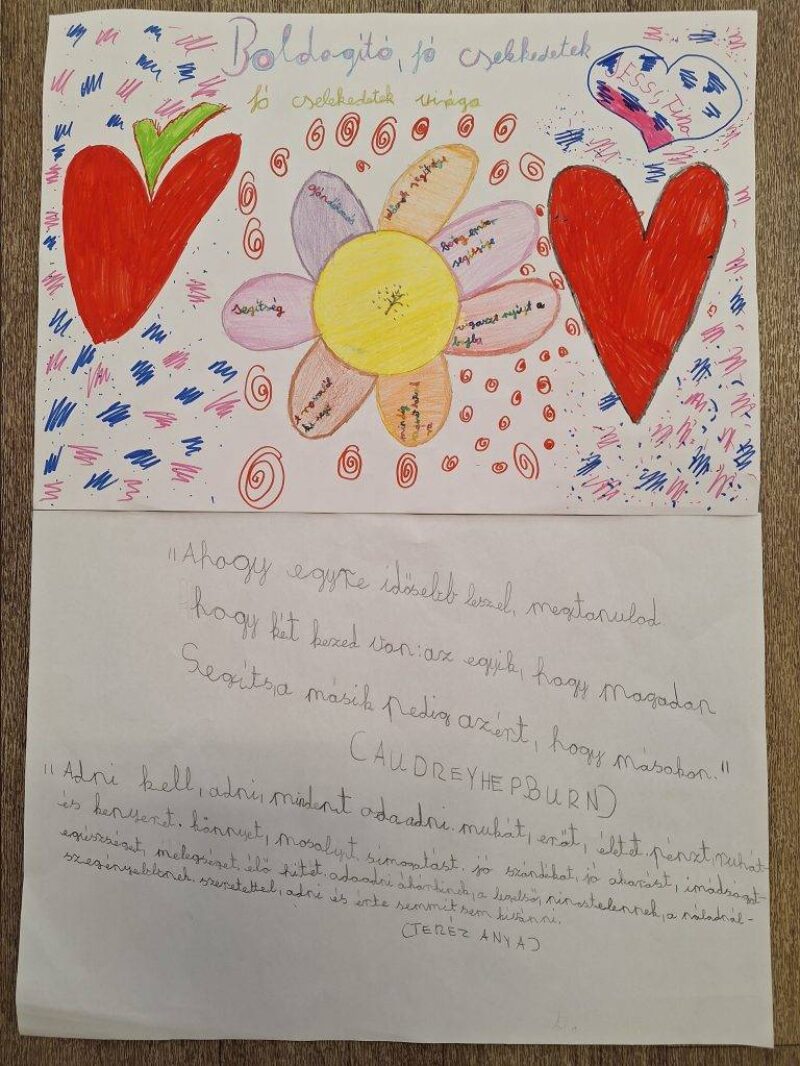 Boldogító, jó cselekedetek
jó cselekedetek virága
JESSI, Fina
segítség
"Ahogy egyre idősebb leszel, megtanulod
hogy két kezed van: az egyik, hogy magadan
Segíts, a másik pedig azért, hogy másokon."
(AUDREYHEPBURN)
"Adni kell, adni, mindent odaadni. muhát, erőt, éltet. pénzt, ruhát-
és kenyeret. könnyet, mosolyt. simogatást. jó szándékot, jó akarást, imádságot-
egészséget, melegséget, élő hitét. odaadni akárkinek, a legelső, nincstelennek, a náladnál-
szegényebbnek. szeretettel, adni és érte semmit sem kívánni.
(TERÉZ ANYA)